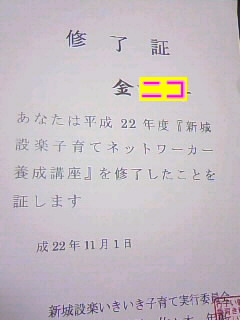 修了証
金 ニコ
あなたは平成 22 年度『新城
設楽子育てネットワーカー
養成講座』を修了したことを
証します
成22年11月1日
新城設楽いきいき子育て実行委員会